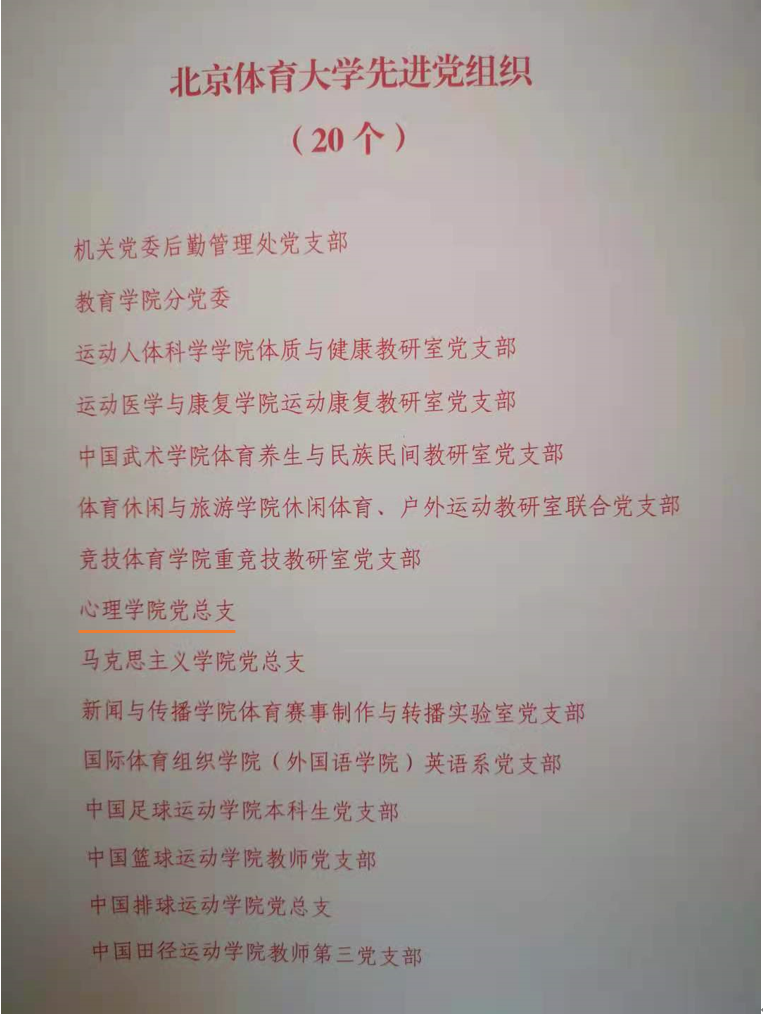 北京体育大学先进党组织
（20 个）
机关党委后勤管理处党支部
教育学院分党委
运动人体科学学院体质与健康教研室党支部
运动医学与康复学院运动康复教研室党支部
中国武术学院体育养生与民族民间教研室党支部
体育休闲与旅游学院休闲体育、户外运动教研室联合党支部
竞技体育学院重竞技教研室党支部
心理学院党总支
马克思主义学院党总支
新闻与传播学院体育赛事制作与转播实验室党支部
国际体育组织学院（外国语学院）英语系党支部
中国足球运动学院本科生党支部
中国篮球运动学院教师党支部
中国排球运动学院党总支
中国田径运动学院教师第三党支部